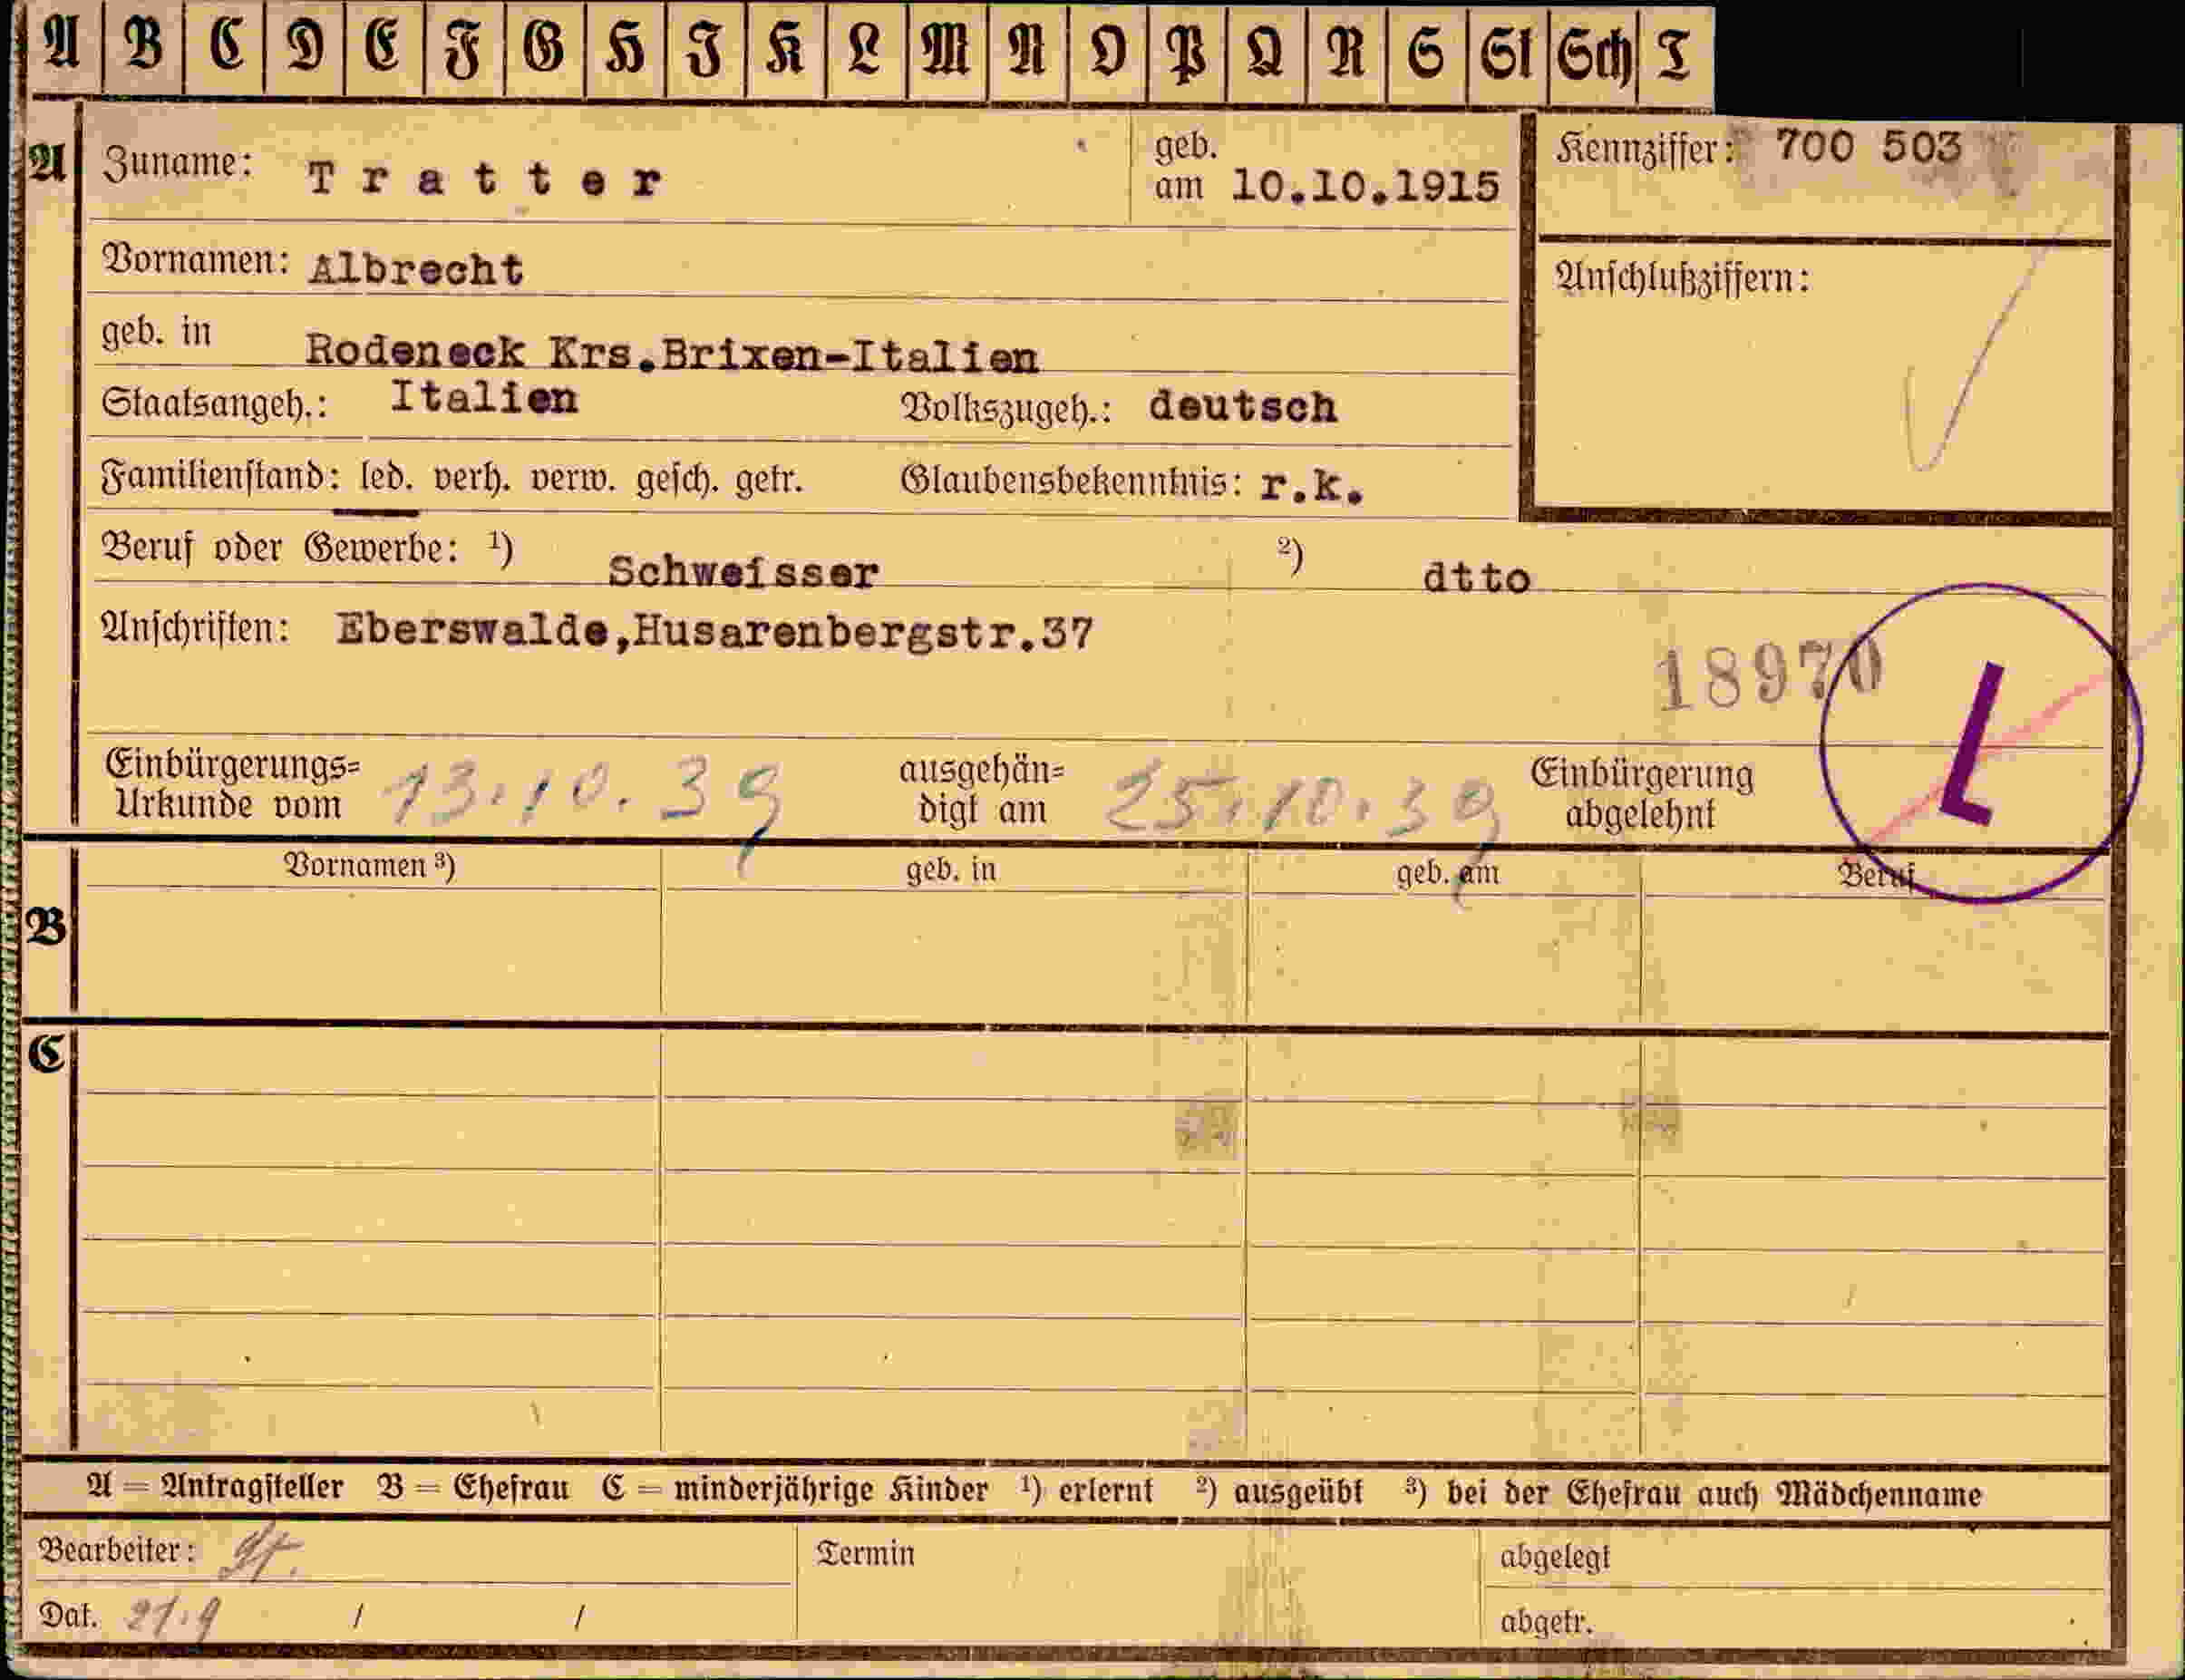 A B C D E F G H I K L M N O P Q R S St Sch T
A
Zuname: Tratter
geb. am 10.10.1915
Kennziffer: 700 503
Vornamen: Albrecht
Anschlußziffern:
geb. in Rodeneck Krs.Brixen-Italien
Staatsangeh.: Italien Volkszugeh.: deutsch
Familienstand: led. verh. verw. gesch. getr. Glaubensbekenntnis: r.k.
Beruf oder Gewerbe: ¹) Schweisser ²) dtto
Anschriften: Eberswalde,Husarenbergstr.37
18970
L
Einbürgerungs=
Urkunde vom 13.10.39
ausgehän=
digt am 25.10.39
Einbürgerung
abgelehnt
Vornamen ³) geb. in geb. am Beruf
B
C
A = Antragsteller B = Ehefrau C = minderjährige Kinder ¹) erlernt ²) ausgeübt ³) bei der Ehefrau auch Mädchenname
Bearbeiter: Termin abgelegt
Dat. 21.9 / / abgetr.